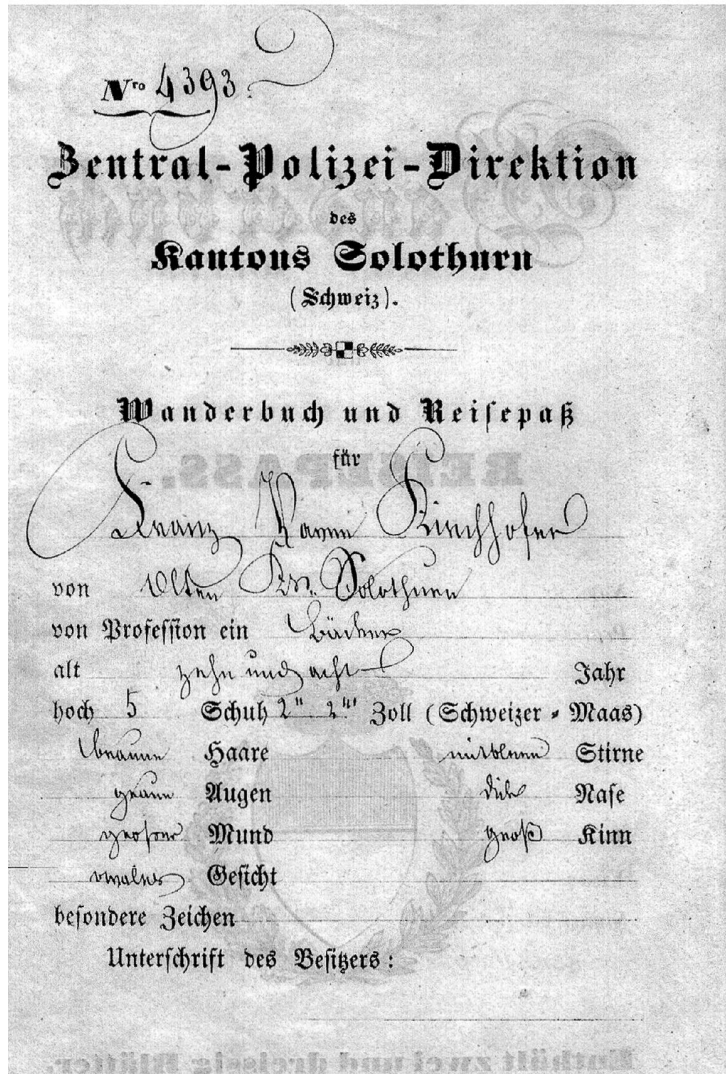 Nro 4393.
Zentral-Polizei-Direktion
des
Kantons Solothurn
(Schweiz).
Wanderbuch und Reisepaß
für
Franz Kirchhofer
von Olten Solothurn
von Profession ein Bäcker
alt zehn und acht Jahr
hoch 5 Schuh 2" 2"' Zoll (Schweizer-Maas)
braune Haare mittlere Stirne
graue Augen dicke Nase
großer Mund groß Kinn
ovales Gesicht
besondere Zeichen
Unterschrift des Besitzers:
REISEPASS.
Enthält zwei und dreissig Blätter.